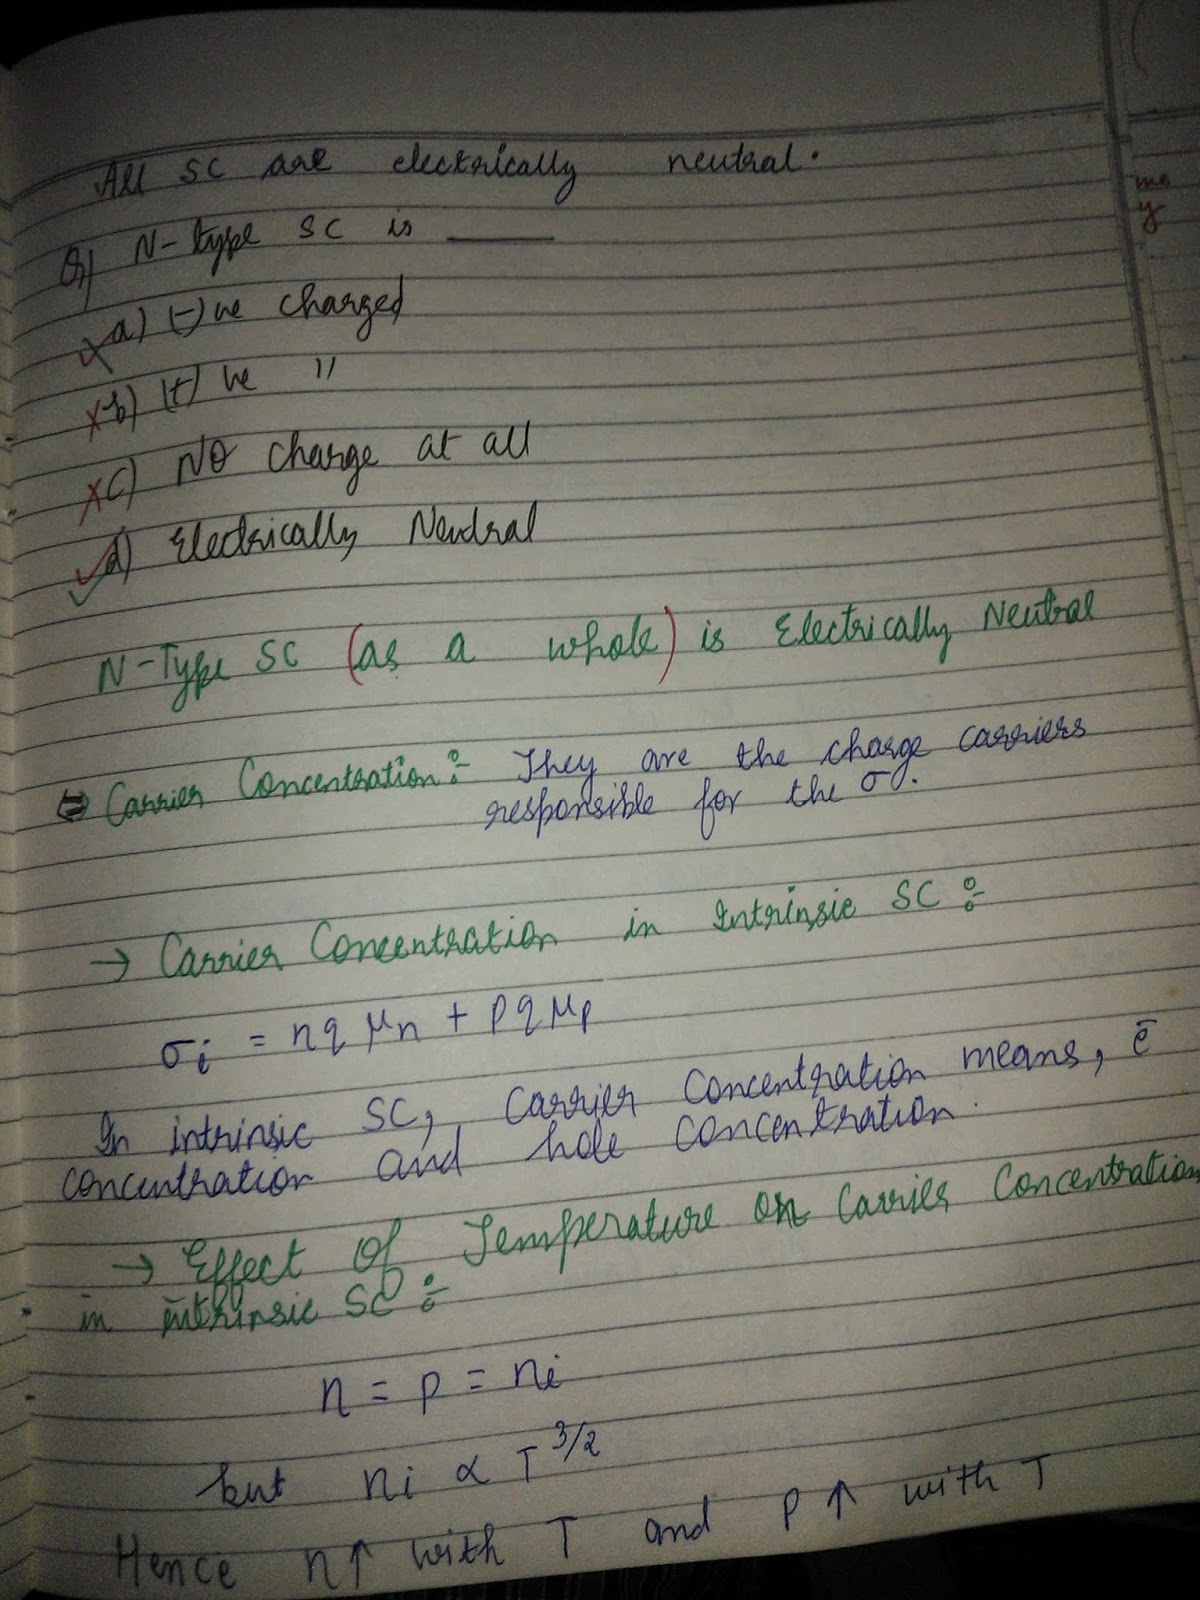 All SC are electrically neutral.
Q) N-type SC is ____
a) (-)ve charged
b) (+)ve "
c) NO charge at all
d) Electrically Neutral
N-Type SC (as a whole) is Electrically Neutral
⇒ Carrier Concentration:- They are the charge carriers
responsible for the σ.
→ Carrier Concentration in Intrinsic SC:-
σi = nqμn + pqμp
In intrinsic SC, Carrier Concentration means, ē
concentration and hole concentration.
→ Effect Of Temperature on Carrier Concentration
in intrinsic SC:-
n = p = ni
but ni ∝ T^3/2
Hence n↑ with T and p↑ with T